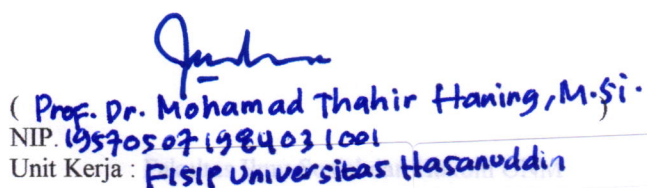 ( Prof. Dr. Mohamad Thahir Haning, M.Si. )
NIP. 195705071984031001
Unit Kerja : FISIP Universitas Hasanuddin